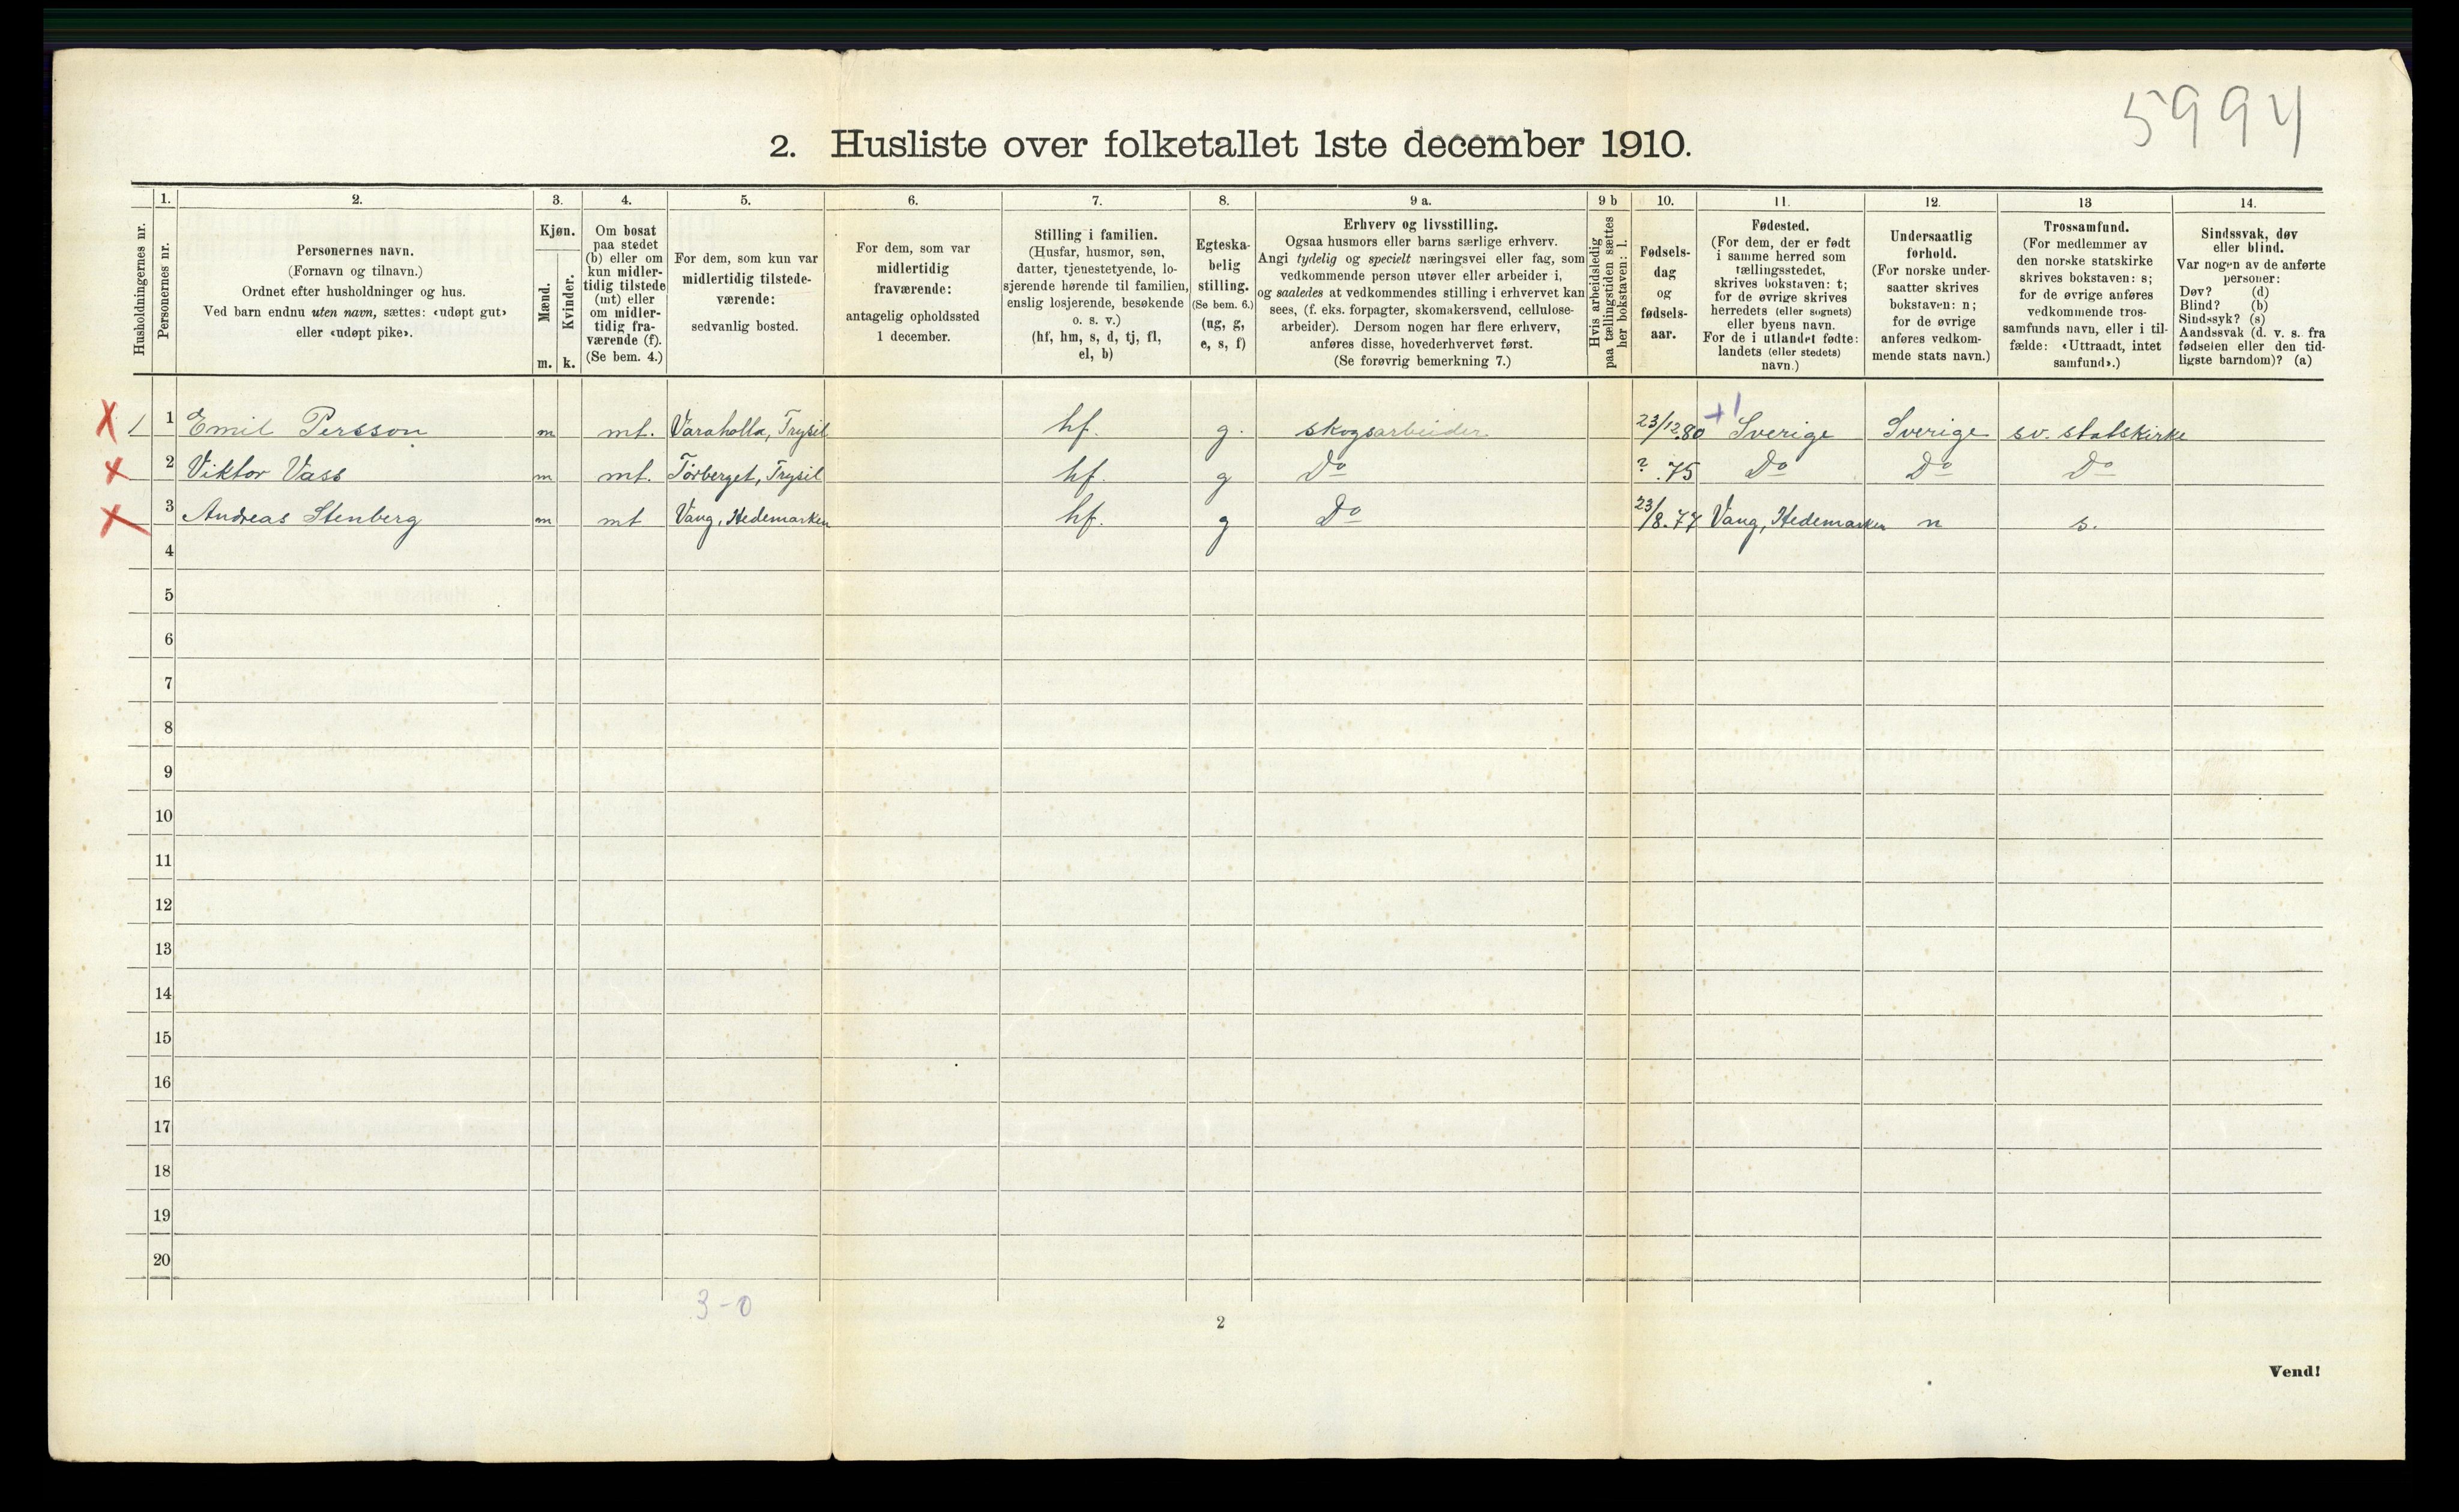 5994
2. Husliste over folketallet 1ste december 1910.
Husholdningernes nr.
1.
Personernes nr.
2.
Personernes navn.
(Fornavn og tilnavn.)
Ordnet efter husholdninger og hus.
Ved barn endnu uten navn, sættes: «udøpt gut»
eller «udøpt pike».
3.
Kjøn.
Mænd.
m.
Kvinder.
k.
4.
Om bosat
paa stedet
(b) eller om
kun midler-
tidig tilstede
(mt) eller
om midler-
tidig fra-
værende (f).
(Se bem. 4.)
5.
For dem, som kun var
midlertidig tilstede-
værende:
sedvanlig bosted.
6.
For dem, som var
midlertidig
fraværende:
antagelig opholdssted
1 december.
7.
Stilling i familien.
(Husfar, husmor, søn,
datter, tjenestetyende, lo-
sjerende hørende til familien,
enslig losjerende, besøkende
o. s. v.)
(hf, hm, s, d, tj, fl,
el, b)
8.
Egteska-
belig
stilling.
(Se bem. 6.)
(ug, g,
e, s, f)
9 a.
Erhverv og livsstilling.
Ogsaa husmors eller barns særlige erhverv.
Angi tydelig og specielt næringsvei eller fag, som
vedkommende person utøver eller arbeider i,
og saaledes at vedkommendes stilling i erhvervet kan
sees, (f. eks. forpagter, skomakersvend, cellulose-
arbeider). Dersom nogen har flere erhverv,
anføres disse, hovederhvervet først.
(Se forøvrig bemerkning 7.)
9 b
Hvis arbeidsledig
paa tællingstiden sættes
her bokstaven: l.
10.
Fødsels-
dag
og
fødsels-
aar.
11.
Fødested.
(For dem, der er født
i samme herred som
tællingsstedet,
skrives bokstaven: t;
for de øvrige skrives
herredets (eller sognets)
eller byens navn.
For de i utlandet fødte:
landets (eller stedets)
navn.)
12.
Undersaatlig
forhold.
(For norske under-
saatter skrives
bokstaven: n;
for de øvrige
anføres vedkom-
mende stats navn.)
13
Trossamfund.
(For medlemmer av
den norske statskirke
skrives bokstaven: s;
for de øvrige anføres
vedkommende tros-
samfunds navn, eller i til-
fælde: «Uttraadt, intet
samfund».)
14.
Sindssvak, døv
eller blind.
Var nogen av de anførte
personer:
Døv? (d)
Blind? (b)
Sindssyk? (s)
Aandssvak (d. v. s. fra
fødselen eller den tid-
ligste barndom)? (a)
X 1 1 Emil Persson m mt. Varaholla, Trysil hf. g. skogsarbeider 23/12.80 +1 Sverige Sverige sv. statskirke
X 2 Viktor Vass m mt. Törberget, Trysil hf. g Do ? .75 Do Do Do
X 3 Andreas Stenberg m mt Vang, Hedemarken hf. g Do 23/8.77 Vang, Hedemarken n s.
4
5
6
7
8
9
10
11
12
13
14
15
16
17
18
19
20
3-0
2
Vend!